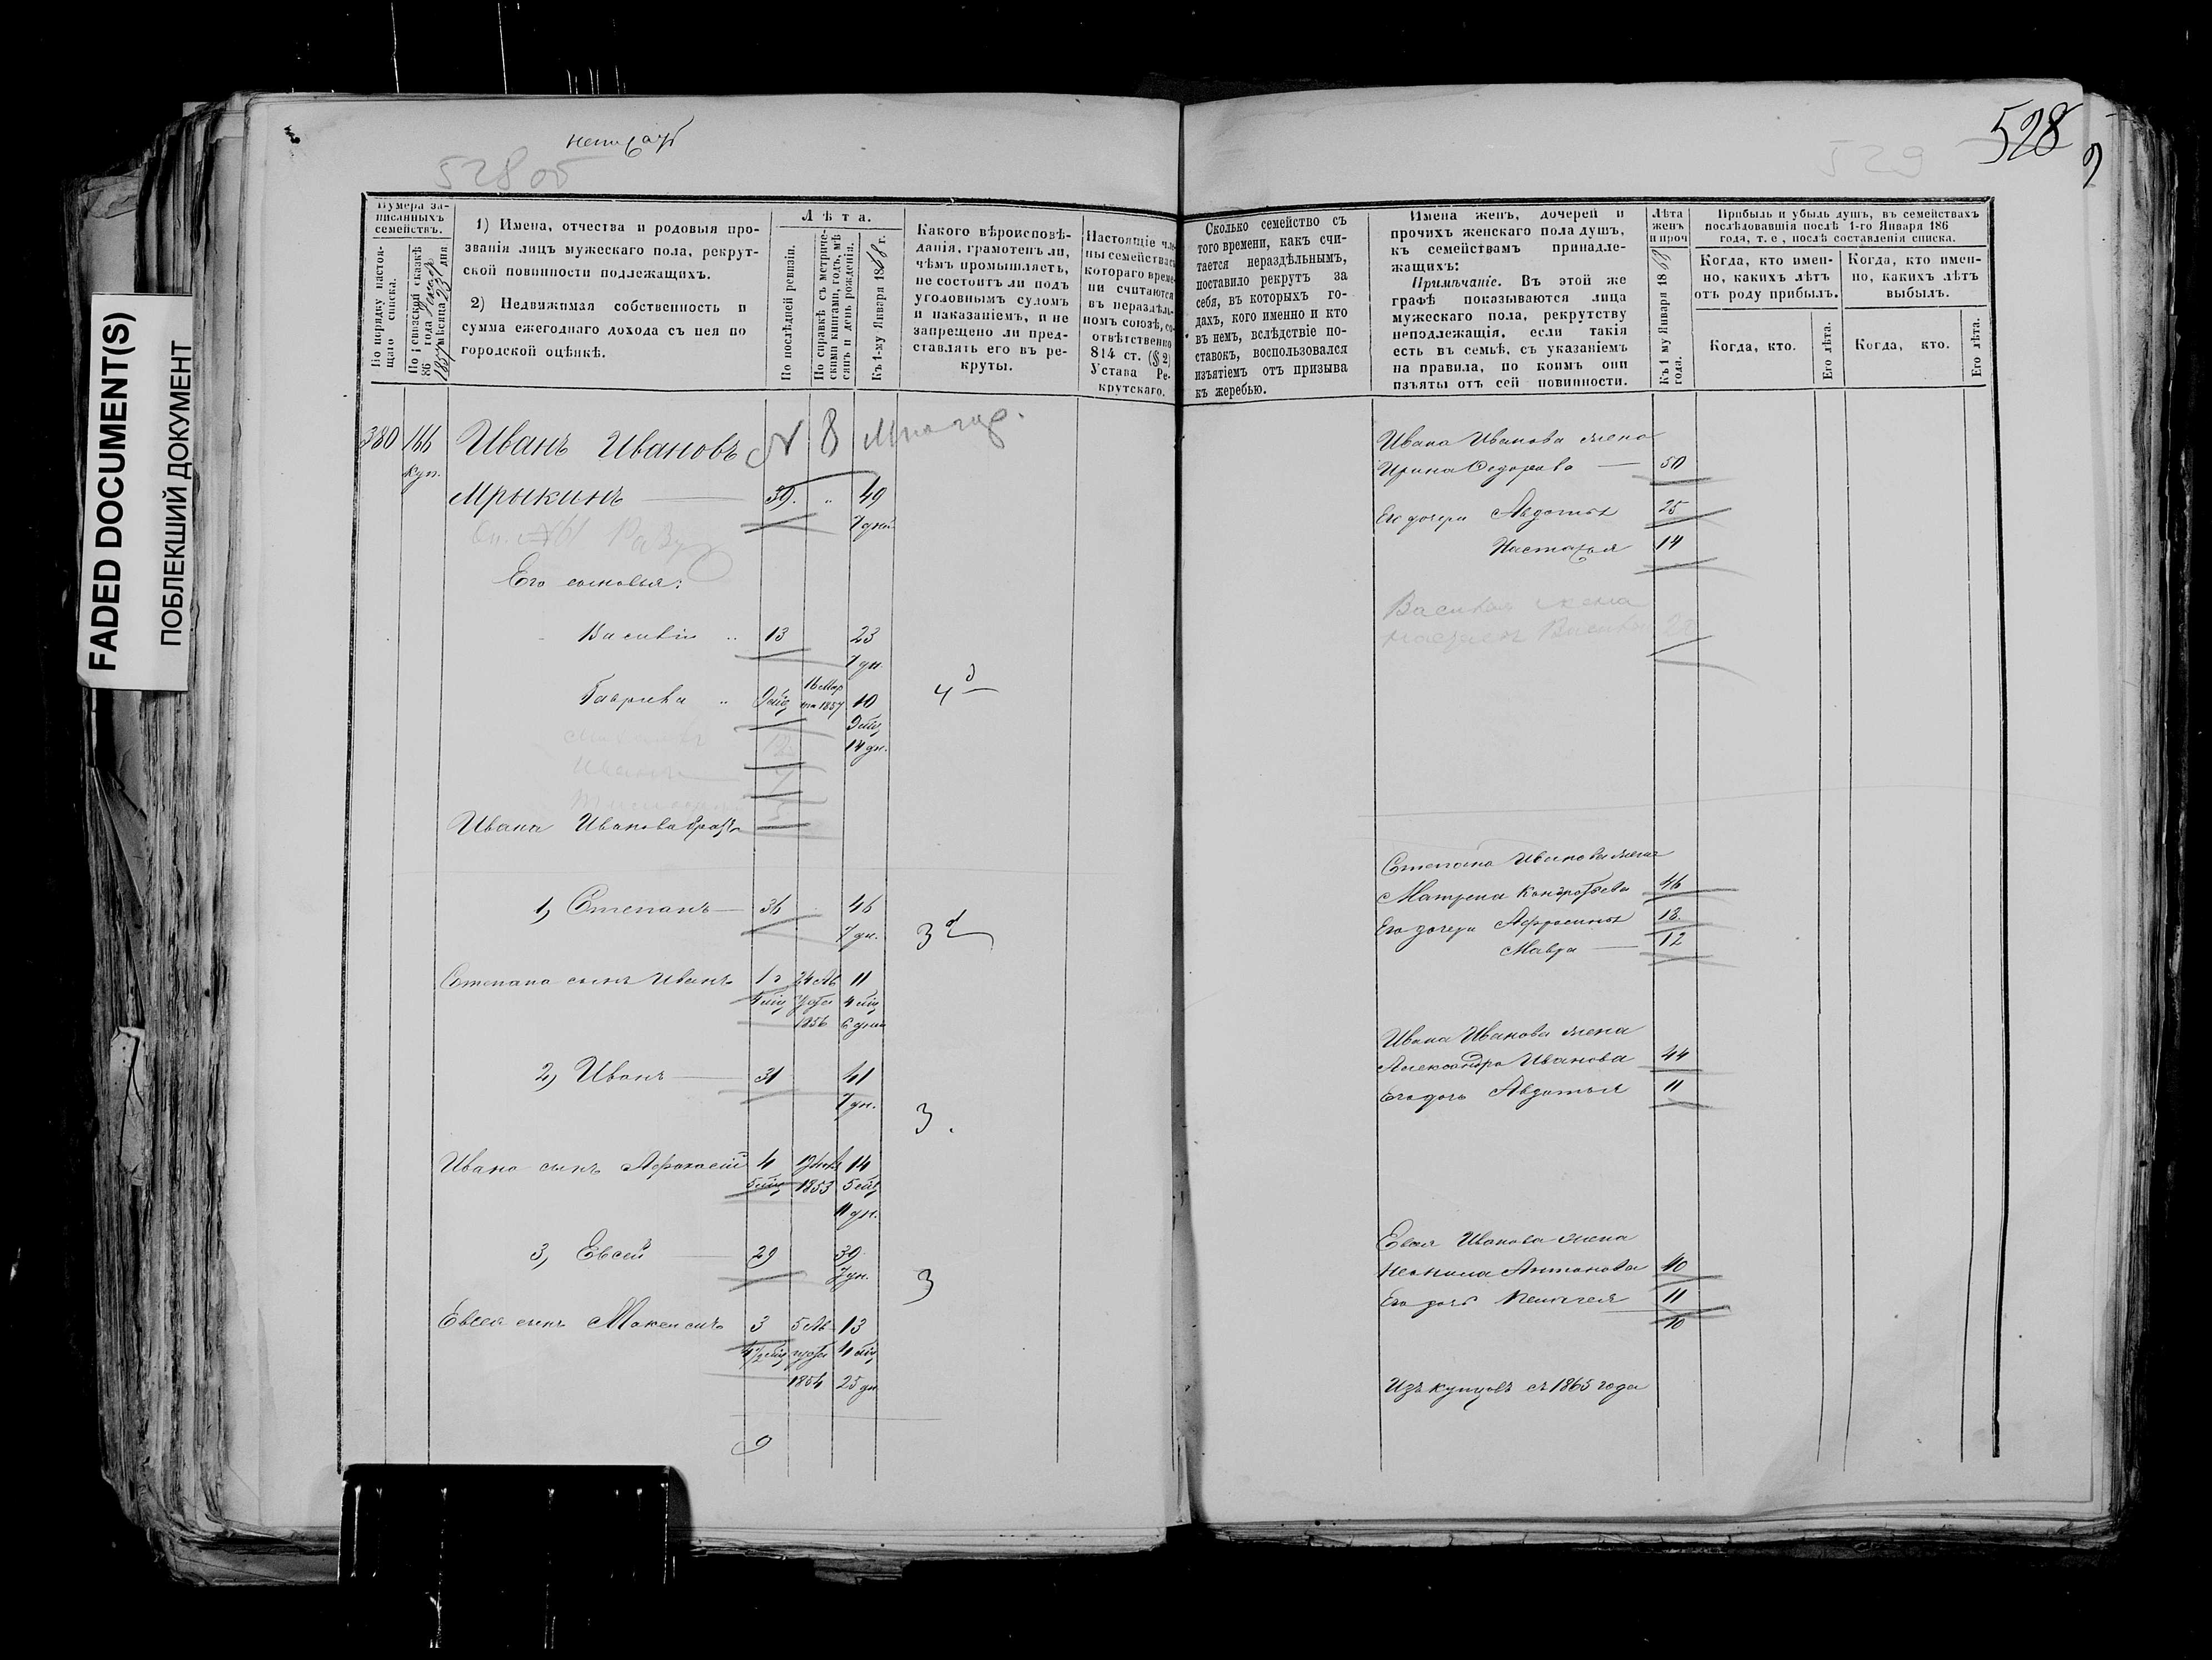 FADED DOCUMENT(S)
ПОБЛЕКШИЙ ДОКУМЕНТ
528 об
528
529
Нумера за-
писанныхъ
семействъ.
По порядку настоя-
щаго списка.
По ревизской сказкѣ
1857 года
мѣсяца 23 дня
1) Имена, отчества и родовыя про-
званія лицъ мужескаго пола, рекрут-
ской повинности подлежащихъ.
2) Недвижимая собственность и
сумма ежегоднаго дохода съ нея по
городской оцѣнкѣ.
Лѣта.
По послѣдней ревизіи.
По справкѣ съ метриче-
скими книгами, годъ, мѣ
сяцъ и день рожденія.
Къ 1-му Января 1868 г.
Какого вѣроисповѣ-
данія, грамотенъ ли,
чѣмъ промышляетъ,
не состоитъ ли подъ
уголовнымъ судомъ
и наказаніемъ, и не
запрещено ли пред-
ставлять его въ ре-
круты.
Настоящіе чле-
ны семействъ съ
котораго време-
ни считаются
въ нераздѣль-
номъ союзѣ, со-
отвѣтственно
814 ст. (§ 2)
Устава Ре-
крутскаго.
Сколько семейство съ
того времени, какъ счи-
тается нераздѣльнымъ,
поставило рекрутъ за
себя, въ которыхъ го-
дахъ, кого именно и кто
въ немъ, вслѣдствіе по-
ставокъ, воспользовался
изъятіемъ отъ призыва
къ жеребью.
Имена женъ, дочерей и
прочихъ женскаго пола душъ,
къ семействамъ принадле-
жащихъ:
Примѣчаніе. Въ этой же
графѣ показываются лица
мужескаго пола, рекрутству
неподлежащія, если такія
есть въ семьѣ, съ указаніемъ
на правила, по коимъ они
изъяты отъ сей повинности.
Лѣта
женъ
и проч
Къ 1 му Января 1868
года.
Прибыль и убыль душъ, въ семействахъ
послѣдовавшія послѣ 1-го Января 186
года, т. е, послѣ составленія списка.
Когда, кто имен-
но, какихъ лѣтъ
отъ роду прибылъ.
Когда, кто имен-
но, какихъ лѣтъ
выбылъ.
Когда, кто.
Его лѣта.
Когда, кто.
Его лѣта.
380 166 Иванъ Ивановъ N 8
куп.
Мрыкинъ 39. " 49
7 дней
Его сыновья:
Василій " 13 23
7 дн.
Гаврила " 9 мѣц 16 Мар
та 1857 10
9 мѣц
14 дн.
4 д
Ивана Иванова братья
1) Степанъ 36 46
7 дн.
3 д
Степана сынъ Иванъ 1 г 24 Ав 11
4 мѣц густа 4 мѣц
1856 6 дней
2) Иванъ 31 41
7 дн.
3.
Ивана сынъ Афанасій 4 14
5 мѣц 1853 5 мѣц
11 дн.
3) Евсей 29 39
7 дн.
3
Евсея сынъ Максимъ 3 5 Ав 13
4 1/2 мѣц густа 4 мѣц
1854 25 дн
9
Ивана Иванова жена
Ирина Федорова 50
Его дочери Авдотья 25
Настасья 14
Василья жена
Степана Иванова жена
Матрена Кондратьева 46
Его дочери Афросинья 18
Мавра 12
Ивана Иванова жена
Александра Иванова 44
Его дочь Авдотья 11
Евсея Иванова жена
Неонила Антонова 40
Его дочь Пелагея 11
10
Изъ купцовъ съ 1865 года